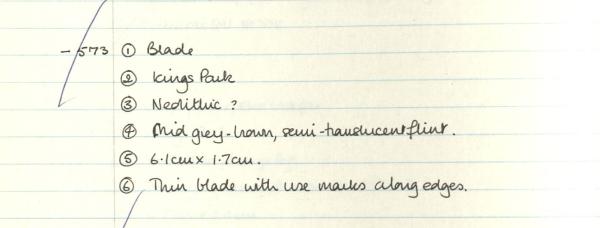 - 573 ① Blade
② Kings Park
③ Neolithic ?
④ Mid grey-brown, semi-translucent flint.
⑤ 6.1cm x 1.7cm.
⑥ Thin blade with use marks along edges.